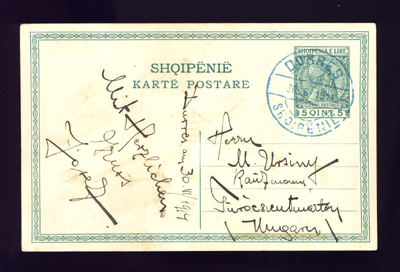 SHQIPËNIË
KARTË POSTARE
SHQIPËNIA E LIRË
5 QINT. 5
DURRËS
SHQIPËNIË
Mit Herzlichen
Gruss
Josef
Durres, am 30/VI 1914
Herrn
M. Ursiny
Kaufmann
Turócszentmárton
Ungarn